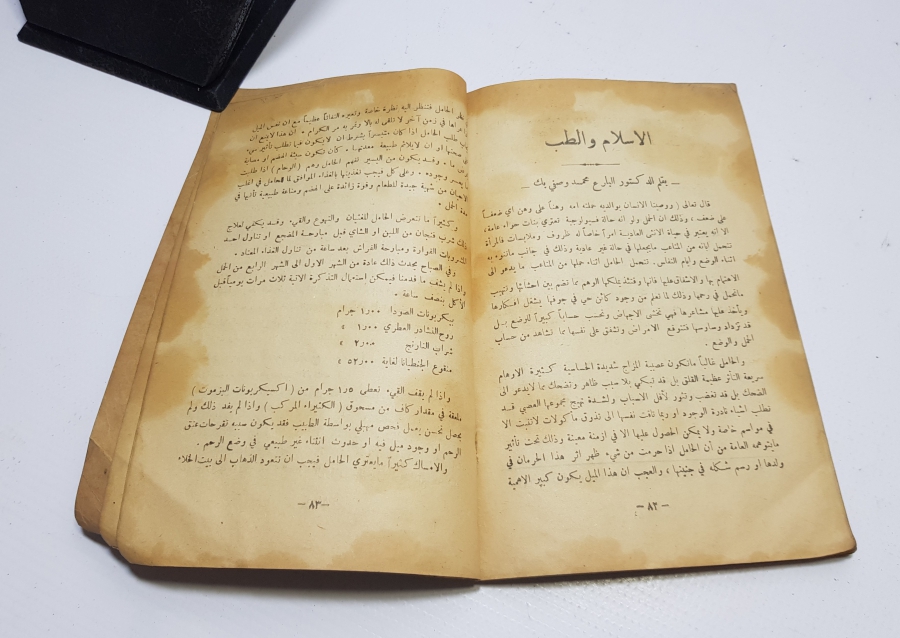 الاسلام والطب
ــ بقلم الدكتور البارع محمد وصفي بك ــ
قال تعالى ( ووصينا الانسان بوالديه حملته امه وهناً على وهن اي ضعفاً
على ضعف ، وذلك ان الحمل ولو انه حالة فسيولوجية تعتري بنات حواء عامة ،
الا انه يعتبر في حياة الانثى العادية امراً خاصاً له ظروف وملابسات فالمرأة
تتحمل ابانه من المتاعب مايجعلها في حالة غير عادية وذلك في جانب ماتنوء به
اثناء الوضع وايام النفاس. تتحمل الحامل اثناء حملها من المتاعب ما يدعو الى
الاهتمام بها والاشفاق عليها فانها وقتئذ يتملكها الوهم بما تضم بين احشائها وتتهيب
ماتحمل في رحمها وذلك لما تعلم من وجود كائن حي في جوفها يشغل افكارها
ويأخذ عليها مشاعرها فهي تخشى الاجهاض وتحسب حساباً كبيراً للوضع بل
قد تزداد وساوسها فتتوقع الامراض وتشفق على نفسها مما تشاهد من حساب
الحمل والوضع .
والحامل غالباً ماتكون عصبية المزاج شديدة الحساسية كثيرة الاوهام
سريعة التأثر عظيمة القلق بل قد تبكي بلا سبب ظاهر وتضحك مما لايدعو الى
الضحك بل قد تغضب وتثور لأقل الاسباب ولشدة تهيج مجموعها العصبي قد
تطلب اشياء نادرة الوجود او ربما تاقت نفسها الى تذوق مأكولات لاتنبت الا
في مواسم خاصة ولا يمكن الحصول عليها الا في ازمنة معينة وذلك تحت تأثير
مايتوهمه العامة من أن الحامل اذا حرمت من شيء ظهر اثر هذا الحرمان في
ولدها او رسم شكله في جنينها ، والعجب ان هذا الميل يكون كبير الاهمية
– ٨٢ –
نظر الحامل فتنظر اليه نظرة خاصة وتعيره التفاتاً عظيماً مع ان نفس الميل
في زمن آخر لا تلقي له بالا وتمر به مر الكرام . ان هذا لايمنع ان
طلب الحامل اذا كان متيسراً بشرط ان لايكون فيما تطلب تأثير سيء
صحتها او ان لايلائم طبيعة معدتها . كأن تكون سيئة الهضم او مصابة
وجوده . وعلى كل فيجب تغذيتها بالغذاء الموافق لها فالحامل في اغلب
الاحيان من شهية جيدة للطعام وقوة زائدة على الهضم ومناعة طبيعية تأتيها في
مدة الحمل .
وكثيراً ما تتعرض الحامل للغثيان والتهوع والقيء وقد يكفي لعلاج
ذلك شرب فنجان من اللبن او الشاي قبل مبارحة المضجع او تناول احد
المشروبات الفوارة ومبارحة الفراش بعد ساعة من تناول الغذاء المعتاد .
وفي الصباح يحدث ذلك عادة من الشهر الاول الى الشهر الرابع من الحمل
واذا لم يشف ما قدمنا فيمكن استعمال التذكرة الاتية ثلاث مرات يومياً قبل
الأكل بنصف ساعة .
بيكربونات الصودا ١ر٠٠ جرام
روح النشادر العطري ١ر٠٠ »
شراب النارنج ٢ر٠٠ »
منقوع الجنطيانا لغاية ٥٢ر٠٠ »
واذا لم يقف القيء تعطى ٥ر١ جرام من ( اكسيكربونات البزموت )
ملعقة في مقدار كاف من مسحوق ( الكثيراء المركب ) واذا لم يفد ذلك ولم
يحصل تحسين يعمل فحص مهبلي بواسطة الطبيب فقد يكون سببه تقرحات بعنق
الرحم او وجود ميل فيه او حدوث انثناء غير طبيعي في وضع الرحم .
والامساك كثيراً مايعتري الحامل فيجب ان تتعود الذهاب الى بيت الخلاء
– ٨٣ –